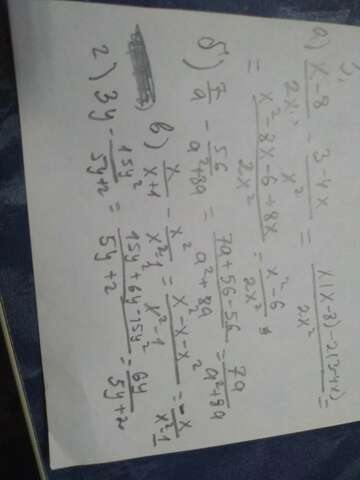 3.
а) x-8/2x - 3-4x/x² = x(x-8)-2(3-4x)/2x² =
= x²-8x-6+8x/2x² = x²-6/2x²
б) 7/a - 56/a²+8a = 7a+56-56/a²+8a = 7a/a²+8a
в) x/x+1 - x²/x²-1 = x²-x-x²/x²-1 = -x/x²-1
г) 3y - 15y²/5y+2 = 15y²+6y-15y²/5y+2 = 6y/5y+2